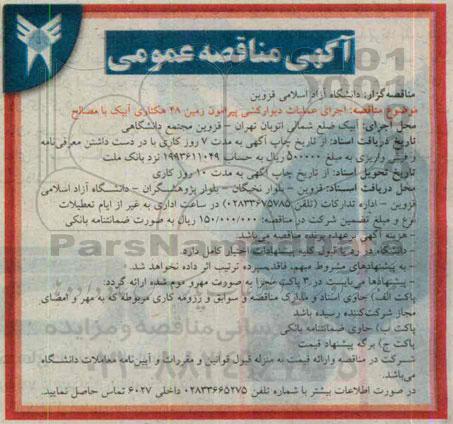 آگهی مناقصه عمومی
مناقصه‌گزار: دانشگاه آزاد اسلامی قزوین
موضوع مناقصه: اجرای عملیات دیوارکشی پیرامون زمین ۴۸ هکتاری آبیک با مصالح
محل اجرای: آبیک ضلع شمالی اتوبان تهران - قزوین مجتمع دانشگاهی
تاریخ دریافت اسناد: از تاریخ چاپ آگهی به مدت ۷ روز کاری با در دست داشتن معرفی‌نامه
و فیش واریزی به مبلغ ۵۰۰۰۰۰ ریال به حساب ۱۹۹۳۶۱۱۰۴۹ نزد بانک ملت
تاریخ تحویل اسناد: از تاریخ چاپ آگهی به مدت ۱۰ روز کاری
محل دریافت اسناد: قزوین - بلوار نخبگان - بلوار پژوهشگران - دانشگاه آزاد اسلامی
قزوین - اداره تدارکات (تلفن ۰۲۸۳۳۶۷۵۷۸۵) در ساعات اداری به غیر از ایام تعطیلات
نوع و مبلغ تضمین شرکت در مناقصه: ۱۵۰/۰۰۰/۰۰۰ ریال به صورت ضمانتنامه بانکی
- هزینه آگهی بر عهده برنده مناقصه می‌باشد.
- دانشگاه در رد یا قبول کلیه پیشنهادات اختیار کامل دارد
- به پیشنهادهای مشروط مبهم، فاقد سپرده ترتیب اثر داده نخواهد شد.
- پیشنهادها می‌بایست در ۳ پاکت مجزا به صورت مهر و موم شده ارائه گردد:
پاکت الف) حاوی اسناد و مدارک مناقصه و سوابق و رزومه کاری مربوطه که به مهر و امضای
مجاز شرکت‌کننده رسیده باشد
پاکت ب) حاوی ضمانتنامه بانکی
پاکت ج) برگه پیشنهاد قیمت
شرکت در مناقصه و ارائه قیمت به منزله قبول قوانین و مقررات و آیین‌نامه معاملات دانشگاه
می‌باشد.
در صورت اطلاعات بیشتر با شماره تلفن ۰۲۸۳۳۶۶۵۲۷۵ داخلی ۶۰۲۷ تماس حاصل نمایید.